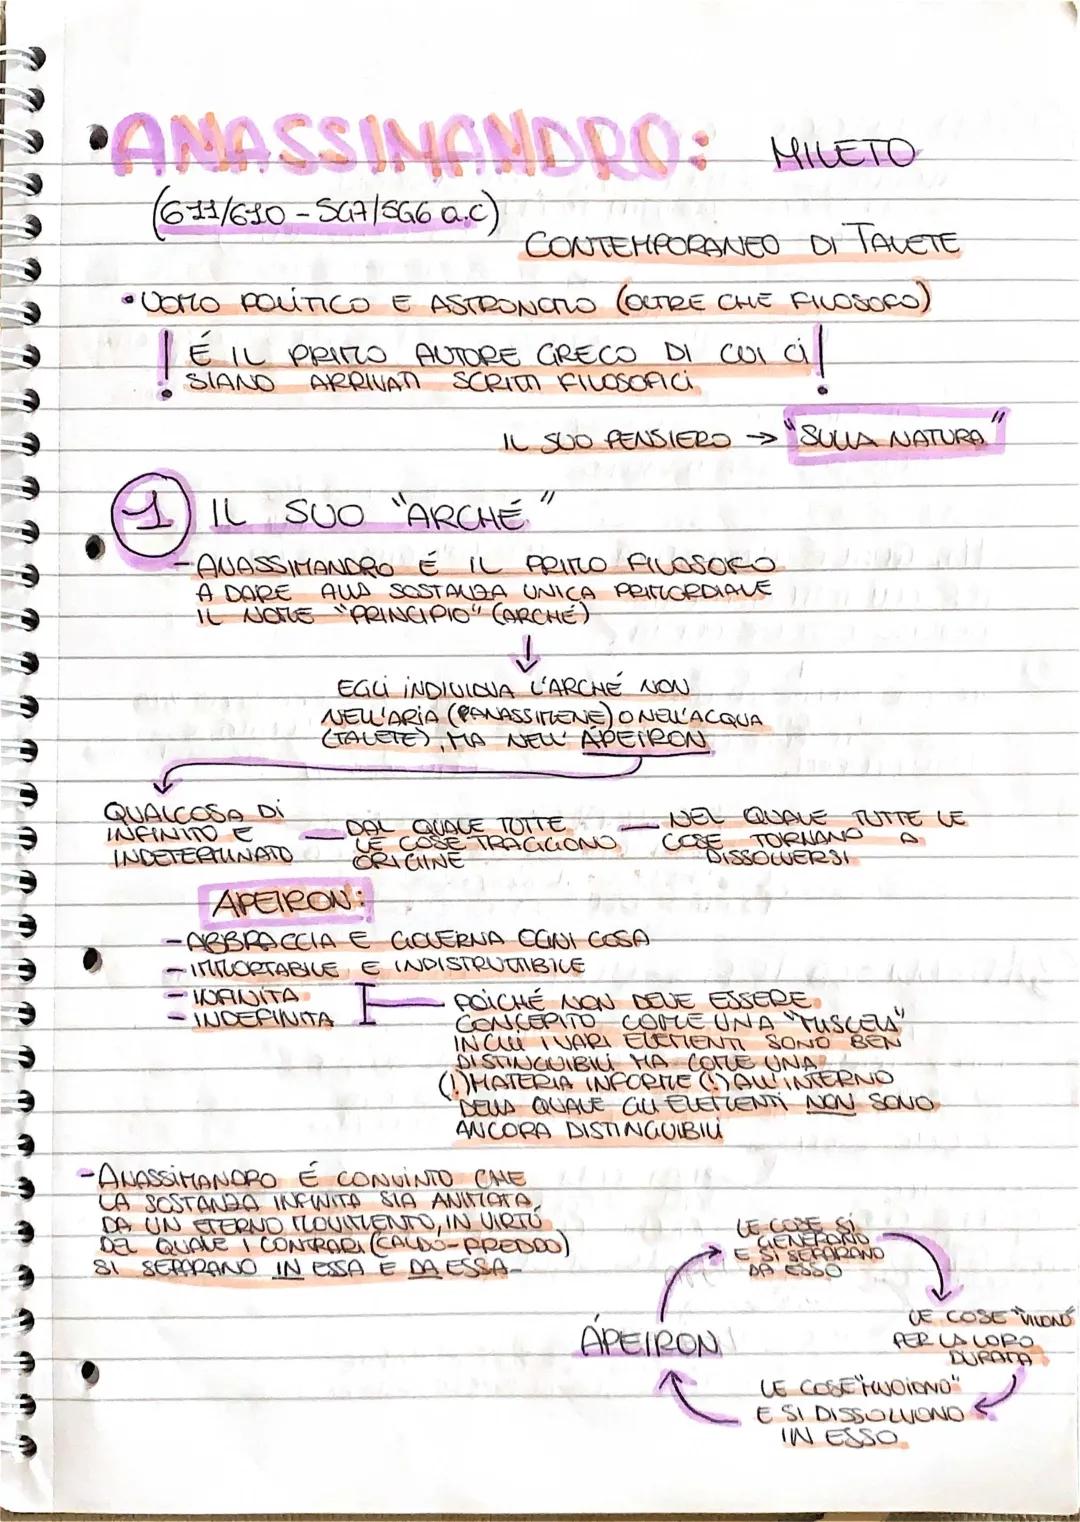 •ANASSIMANDRO: MILETO
(611/610 - 547/546 a.C)
CONTEMPORANEO DI TALETE
•UOMO POLITICO E ASTRONOMO (OLTRE CHE FILOSOFO)
! É IL PRIMO AUTORE GRECO DI CUI CI !
SIANO ARRIVATI SCRITTI FILOSOFICI
IL SUO PENSIERO → "SULLA NATURA"
1 IL SUO "ARCHÉ"
-ANASSIMANDRO É IL PRIMO FILOSOFO
A DARE ALLA SOSTANZA UNICA PRIMORDIALE
IL NOME "PRINCIPIO" (ARCHÉ)
↓
EGLI INDIVIDUA L'ARCHÉ NON
NELL'ARIA (ANASSIMENE) O NELL'ACQUA
(TALETE), MA NELL' ÁPEIRON
QUALCOSA DI
INFINITO E
INDETERMINATO
— DAL QUALE TUTTE
LE COSE TRAGGONO
ORIGINE
— NEL QUALE TUTTE LE
COSE TORNANO A
DISSOLVERSI
APEIRON:
-ABBRACCIA E GOVERNA OGNI COSA
-IMMORTABILE E INDISTRUTTIBILE
-INFINITA
-INDEFINITA
POICHÉ NON DEVE ESSERE
CONCEPITO COME UNA "MISCELA"
IN CUI I VARI ELEMENTI SONO BEN
DISTINGUIBILI MA COME UNA
(!) MATERIA INFORME (!) ALL'INTERNO
DELLA QUALE GLI ELEMENTI NON SONO
ANCORA DISTINGUIBILI
-ANASSIMANDRO É CONVINTO CHE
LA SOSTANZA INFINITA SIA ANIMATA
DA UN ETERNO MOVIMENTO, IN VIRTÚ
DEL QUALE I CONTRARI (CALDO-FREDDO)
SI SEPARANO IN ESSA E DA ESSA-
LE COSE SI
GENERANO
E SI SEPARANO
DA ESSO
ÁPEIRON
LE COSE "VIVONO"
PER LA LORO
DURATA
LE COSE "MUOIONO"
E SI DISSOLVONO
IN ESSO